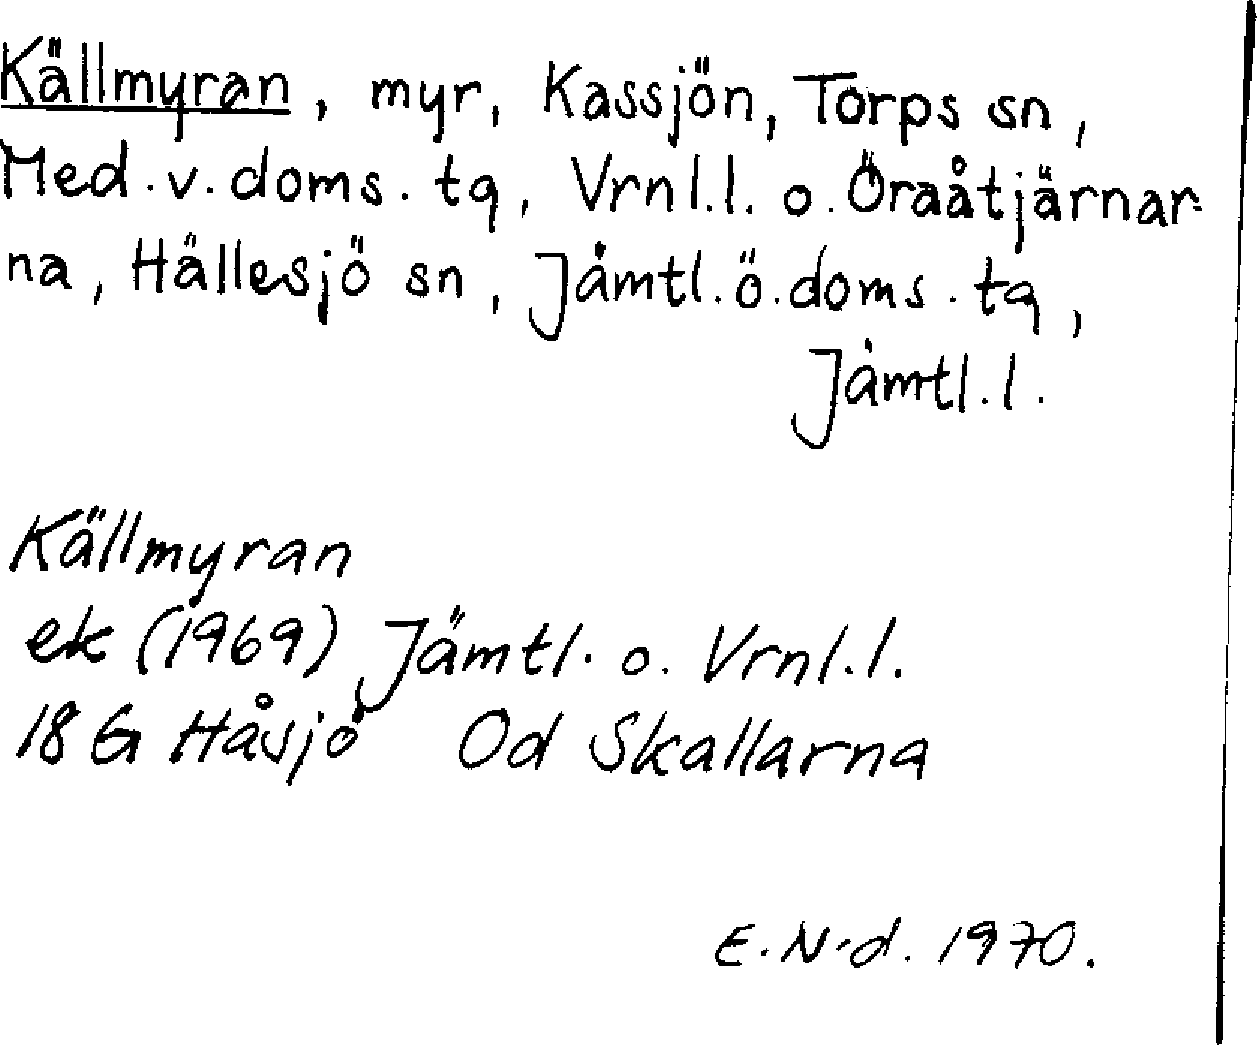 Källmyran, myr, Kassjön, Torps sn,
Med.v.doms.tg, Vrnl.l. o. Öraåtjärnar-
na, Hällesjö sn, Jämtl.ö.doms.tg,
Jämtl.l.
Källmyran
ek (1969) Jämtl. o. Vrnl.l.
18 G Håsjö Od Skallarna
E.N-d. 1970.